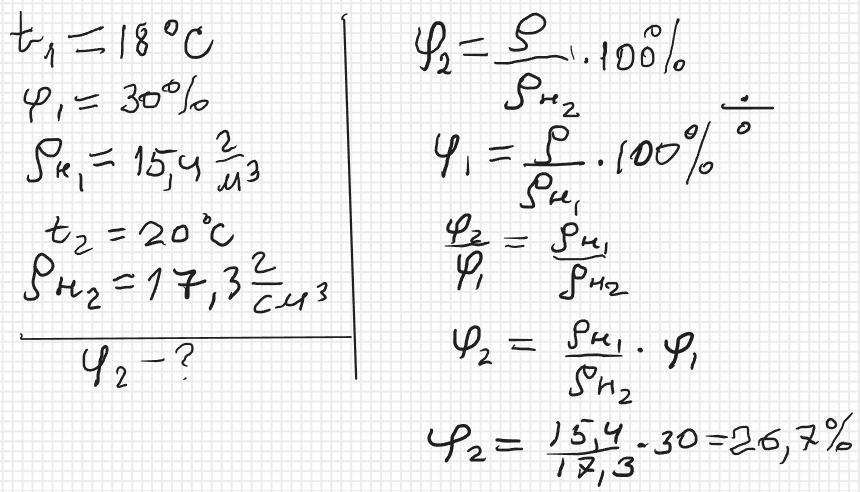 t₁ = 18°C
φ₁ = 30%
ρн₁ = 15,4 г/м³
t₂ = 20°C
ρн₂ = 17,3 г/см³
φ₂ - ?
φ₂ = ρ/ρн₂ · 100%
φ₁ = ρ/ρн₁ · 100% ÷
φ₂/φ₁ = ρн₁/ρн₂
φ₂ = ρн₁/ρн₂ · φ₁
φ₂ = 15,4/17,3 · 30 = 26,7%